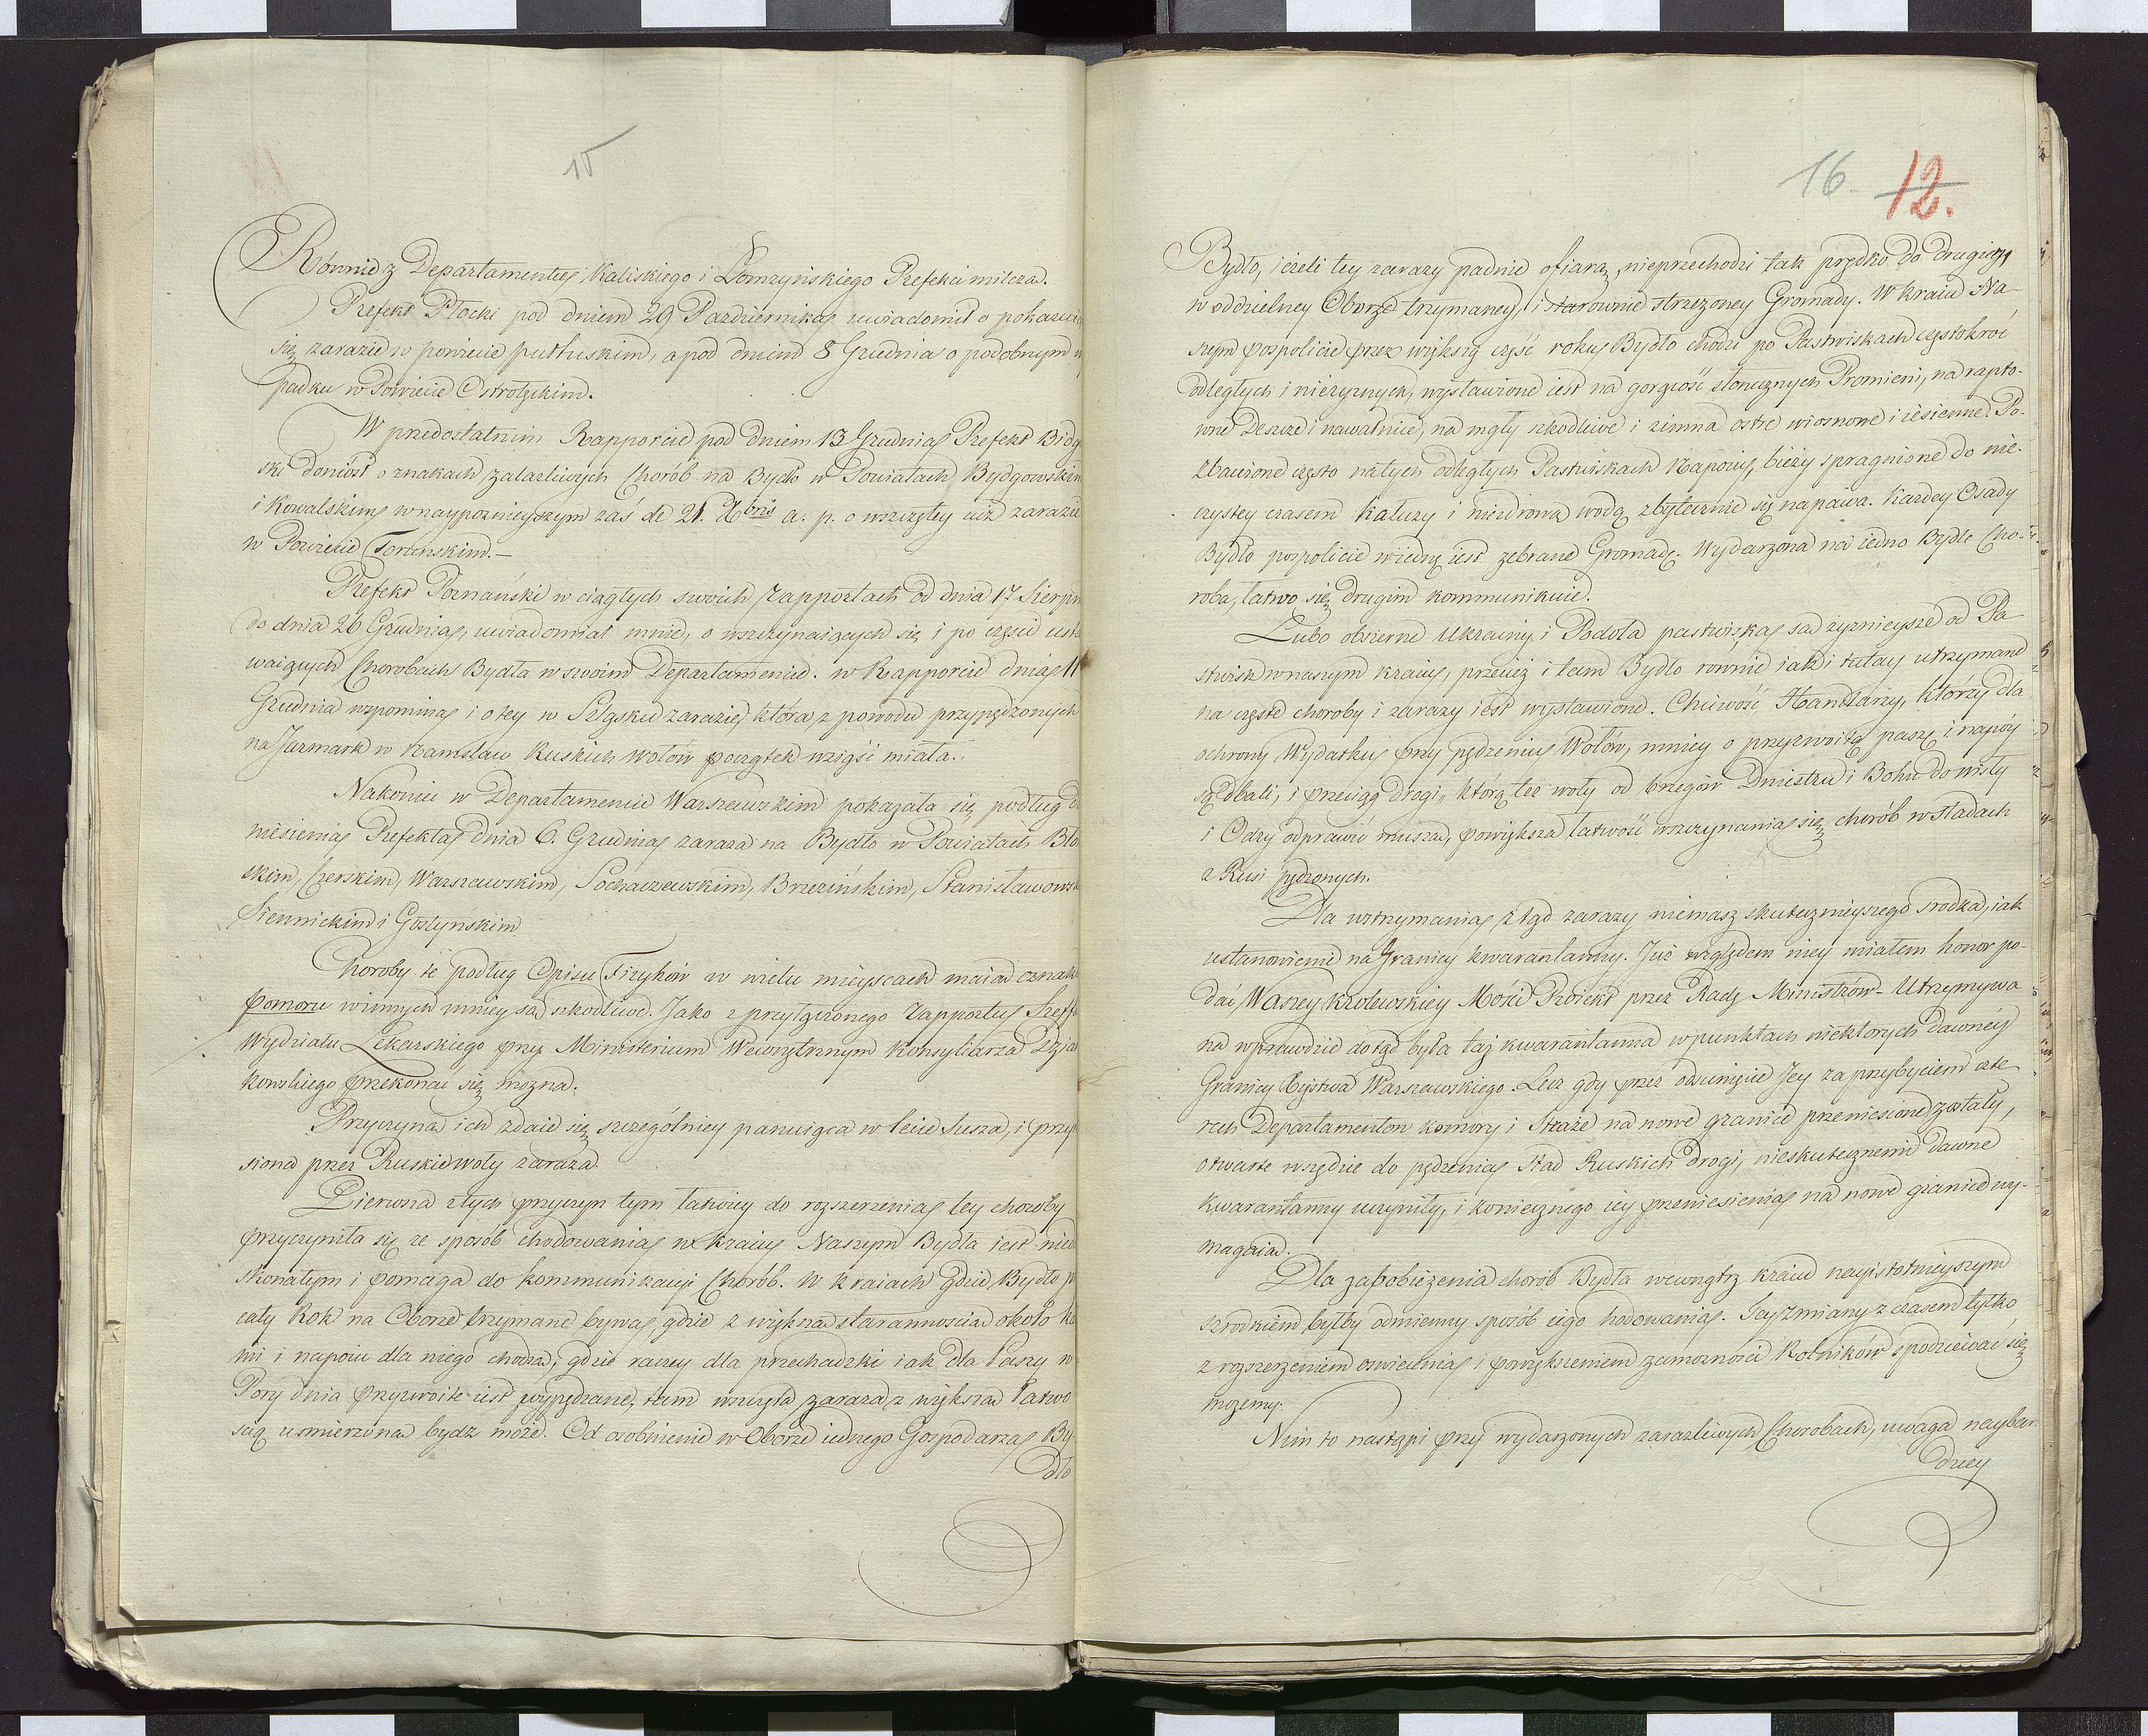 15
Równie z Departamentu Kaliskiego i Łomżyńskiego Prefekci milczą.
Prefekt Płocki pod dniem 29 Pazdziernika uwiadomił o pokazaniu
się zarazie w powiecie pułtuskim, a pod dniem 8 Grudnia o podobnym
padku w Powiecie Ostrołęckim.
W przedostatnim Rapporcie pod dniem 13 Grudnia Prefekt Bidg
ski doniósł o znakach zaraźliwych Chorób na Bydło w Powiatach Bydgowskim
i Kowalskim, w naypoznieyszym zaś de 21. Xbris a. p. o wszczętey iuż zarazie
w Powiecie Toruńskim.—
Prefekt Poznański w ciągłych swoich rapportach od dnia 17 Sierpn
do dnia 26 Grudnia, uwiadomiał mnie, o wszczynaiących się i po części usta
waiących Chorobach Bydła w swoim Departamencie. w Rapporcie dnia 11
Grudnia wspomina i o tey w Szląsku zarazie, która z powodu przypędzonych
na Jarmark w Namslau Ruskich wołów początek wziąść miała.
Nakoniec w Departamencie Warszawskim pokazała się podług do
niesienia Prefekta dnia 6. Grudnia zaraza na Bydło w Powiatach Bło
ckim, Czerskim, Warszawskim, Sochaczewskim, Brzezińskim, Stanisławows
Siennickim i Gostyńskim
Choroby te podług Opisu Fizyków w wielu mieyscach maią oznaki
pomoru w innych mniey są szkodliwe. Jako z przyłączonego rapportu Szeffa
Wydziału Lekarskiego przy Ministerium Wewnętrznym Konsyliarza Dzia
kowskiego przekonać się można.
Przyczyna ich zdaie się szczególniey panuiąca w lecie susza, i przy
siona przez Ruskie woły zaraza.
Pierwsza z tych przyczyn tym łatwiey do rozszerzenia tey choroby
przyczyniła się ze sposób chodowania w Kraiu Naszym Bydła iest nied
skonałym i pomaga do kommunikacyi Chorób. W kraiach gdzie Bydło p
cały Rok na Oborze trzymane bywa, gdzie z większą starannością około ka
mi i napoiu dla niego chodzą, gdzie raczey dla przechadzki iak dla Paszy w
Pory dnia przyzwoite iest wypędzane, tam wszczęta zaraza z większą łatwo
scią usmierzona bydz może. Od osobnienie w Oborze iednego Gospodarza By
dło
16 12.
Bydło, ieżeli tey zarazy padnie ofiarą, nieprzechodzi tak prędko do drugiey
w oddzielney Oborze trzymaney, i starownie strzeżoney Gromady. W kraiu Na-
szym pospolicie przez większą część roku Bydło chodzi po Pastwiskach częstokroć
odległych i nieżyznych, wystawione iest na gorącość słonecznych Promieni, na rapto-
wne Deszcze i nawałnice, na mgły szkodliwe i zimna ostre wiosnowe i iesienne. Po-
zbawione często na tych odległych Pastwiskach Napoiu, bieży spragnione do nie-
czystey czasem kałuży i niezdrową wodą zbytecznie się napawa. Każdey Osady
Bydło pospolicie w iedną iest zebrane Gromadę. Wydarzona na iedno Bydle Cho-
roba, łatwo się drugim kommunikuie.
Lubo obszerne Ukrainy i Podola pastwiska są żyznieysze od Pa
stwisk w naszym kraiu, przecież i tam Bydło równie iak i tutay utrzymane
na częste choroby i zarazy iest wystawione. Chciwość Handlarzy, którzy dla
ochrony Wydatku przy pędzeniu Wołów, mniey o przyzwoitą paszę i napóy
są dbali, i przeciąg drogi, którą też woły od brzegów Dniestru i Bohu do wisły
i Odry odprawić muszą, powiększa łatwość wszczynania się chorób w stadach
z Rusi pędzonych.
Dla wstrzymania ztąd zarazy niemasz skutecznieyszego srodka, iak
ustanowienie na Granicy kwarantanny. Już względem niey miałem honor po-
dać Waszey Królewskiey Mości Proiekt przez Radę Ministrów - Utrzymywa
na wprawdzie dotąd była taż kwarantanna w punktach niektorych dawnéy
Granicy Xięstwa Warszawskiego. Lecz gdy przez odsunięcie Jey za przybyciem czte
rech Departamentow komory i Straże na nowe granice przeniesione zostały,
otwarte wszędzie do pędzenia Stad Ruskich drogi, nieskutecznemi dawne
kwarantanny uczyniły, i koniecznego iey przeniesienia na nowe granice wy-
magaią.
Dla zapobieżenia chorób Bydła wewnątrz kraiu nayistotnieyszym
szrodkiem byłby odmienny sposób iego hodowania. Tey zmiany z czasem tylko
z rozszerzeniem oswiecenia i powiększeniem zamożności Rolników spodziewać się
możemy.
Nim to nastąpi przy wydarzonych zaraźliwych Chorobach, uwaga naybar-
dziey